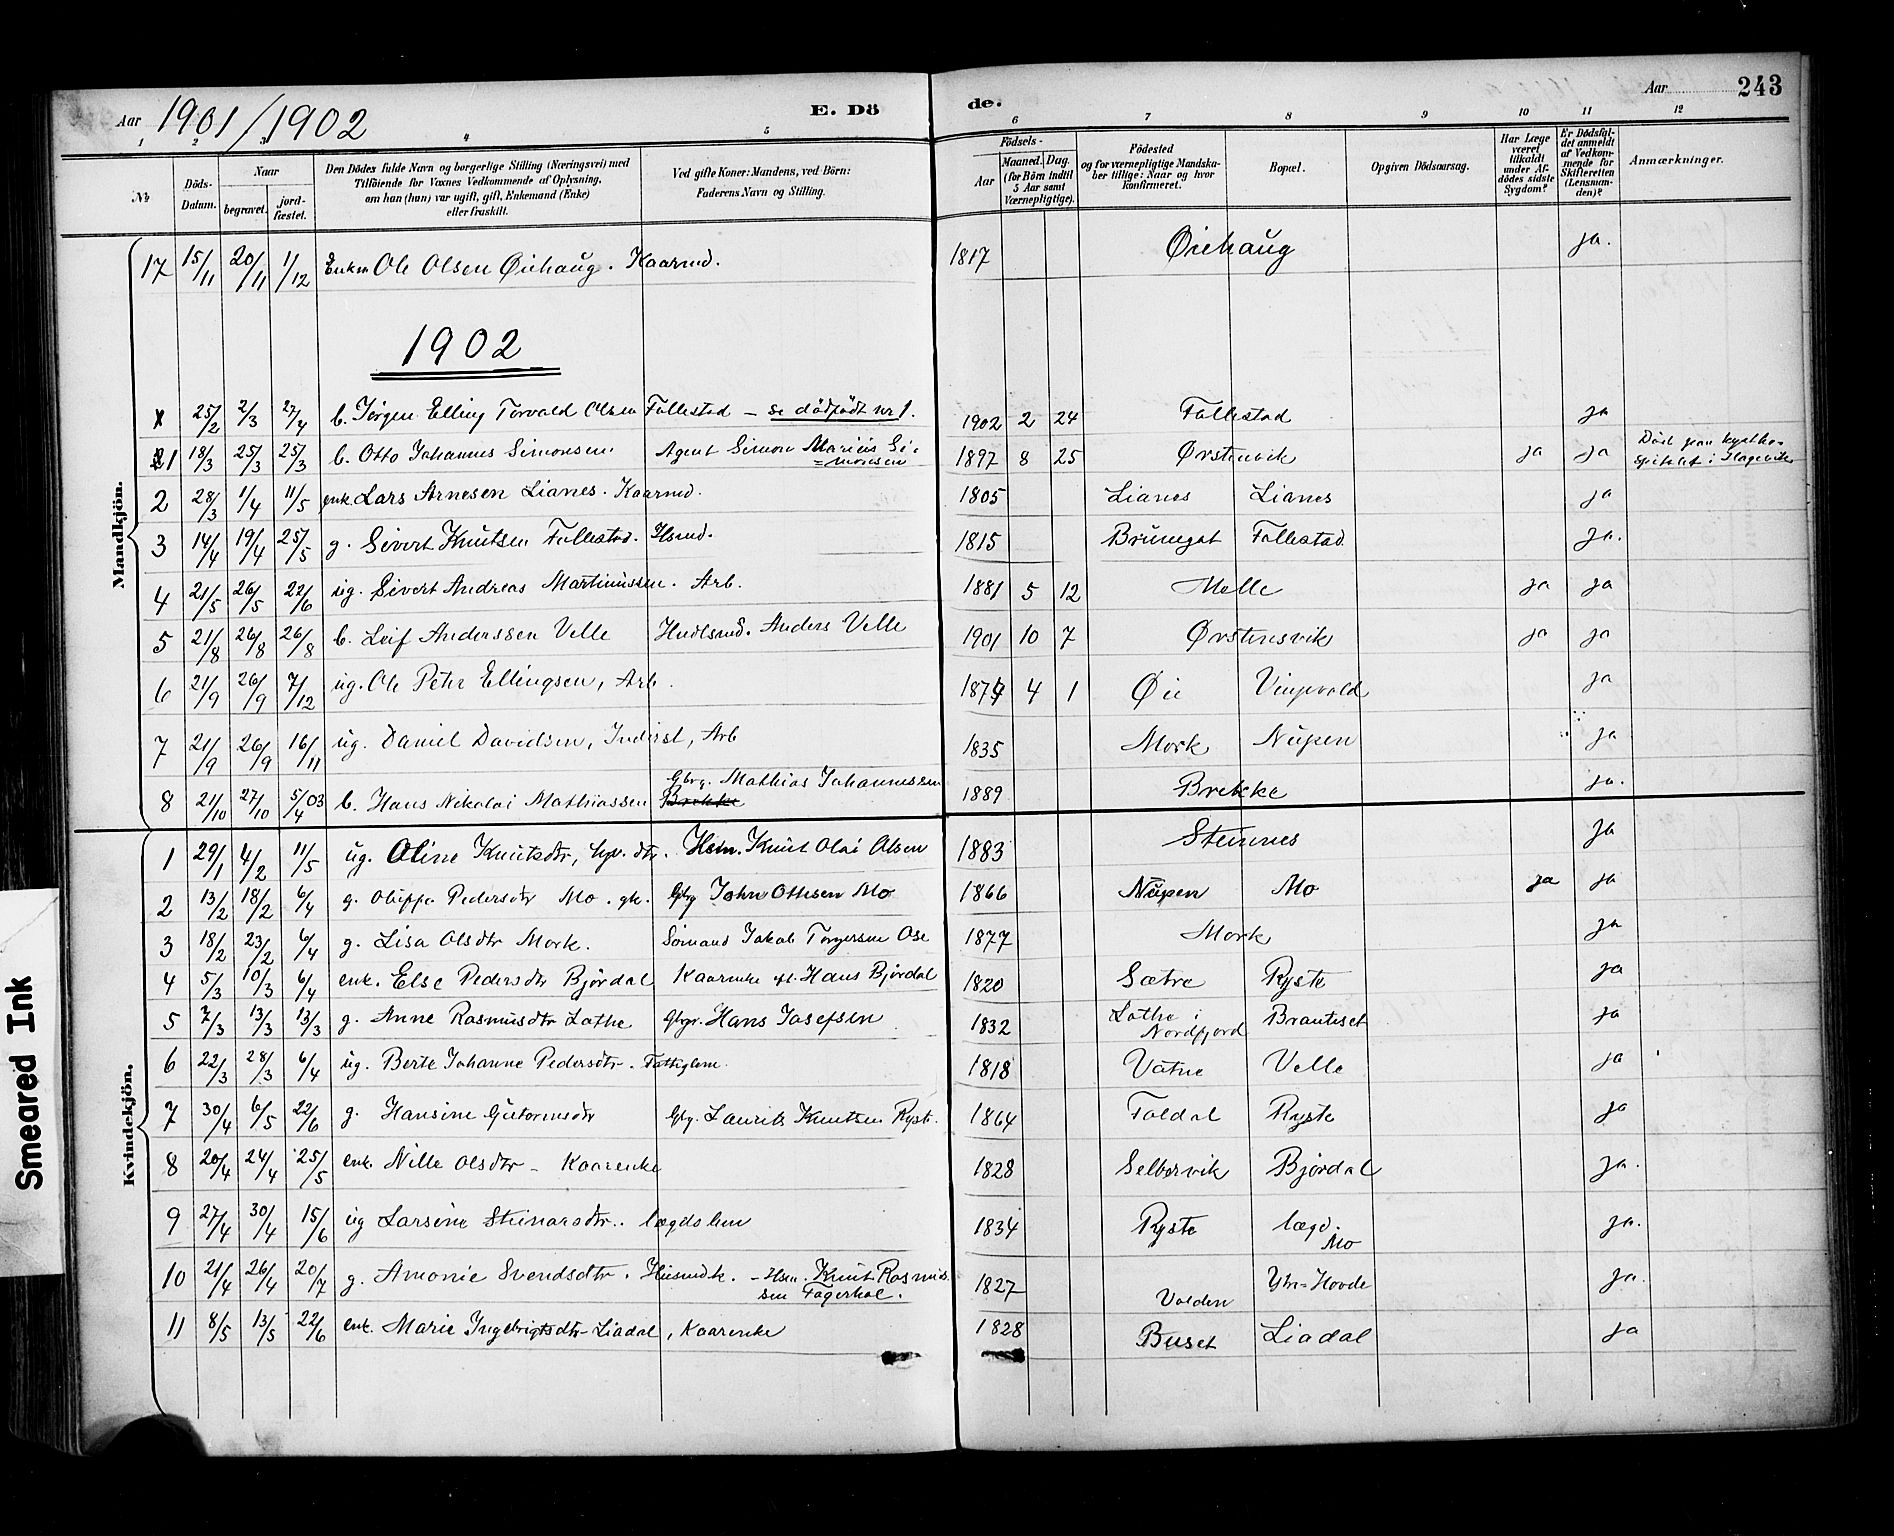 Aar 1901/1902 E. Döde. Aar 243
1 2 3 4 5 6 7 8 9 10 11 12
№ Döds-Datum. Naar begravet. jord-fæstet. Den Dödes fulde Navn og borgerlige Stilling (Næringsvei) med Tilföiende for Voxnes Vedkommende af Oplysning, om han (hun) var ugift, gift, Enkemand (Enke) eller fraskilt. Ved gifte Koner: Mandens, ved Börn: Faderens Navn og Stilling. Födsels- Aar Maaned. Dag. (for Börn indtil 5 Aar samt Værnepligtige). Födested og for værnepligtige Mandskaber tillige: Naar og hvor konfirmeret. Bopæl. Opgiven Dödsaarsag. Har Læge været tilkaldt under Afdödes sidste Sygdom? Er Dödsfaldet anmeldt af Vedkommende for Skifteretten (Lensmanden)? Anmærkninger.
Mandkjön.
17 15/11 20/11 1/12 Enkm Ole Olsen Øiehaug. Kaarmd. 1817 Øiehaug ja.
1902
x 25/2 2/3 27/4 b. Jørgen Elling Torvald Olsen Follestad – se dødfødt nr 1. 1902 2 24 Follestad ja
1 18/3 25/3 25/3 b. Otto Johannes Simonsen Agent Simon Marius Si-
=monsen 1897 8 25 Ørstenvik ja ja
2 28/3 1/4 11/5 enk. Lars Arnesen Lianes. Kaarmd. 1805 Lianes Lianes ja
3 14/4 19/4 25/5 g. Sivert Knutsen Follestad. Hsmd. 1815 Follestad ja.
4 21/5 26/5 22/6 ug. Sivert Andreas Martinussen. Arb. 1881 5 12 Melle ja ja
5 21/8 26/8 26/8 b. Leif Anderssen Velle Hndlsmd. Anders Velle 1901 10 7 Ørstensvik ja ja
6 21/9 26/9 7/12 ug. Ole Peter Ellingsen, Arb. 4 1 Øie ja
7 21/9 26/9 16/11 ug. Daniel Davidsen, Inderst, Arb 1835 Mork Nupen ja
8 21/10 27/10 5/4 03 b. Hans Nikolai Mathiassen Gbrg. Mathias Johannessen
Brekke 1889 Brekke ja.
Kvindekjön.
1 29/1 4/2 11/5 ug. Oline Knutsdtr, dtr. Hsm. Knut Olai Olsen 1883 Steinnes ja
2 13/2 18/2 6/4 g. Pedersdtr Mo. gk. Gbrg John Ottesen Mo 1866 Nupen Mo ja ja
3 18/2 23/2 6/4 g. Lisa Olsdtr Mork. Sømand Jakob Torgersen Ose 1877 Mork ja
4 5/3 10/3 6/4 enk. Else Pedersdtr Bjørdal Kaarenke Hans Bjørdal 1820 Sætre Ryste ja
5 7/3 13/3 13/3 g. Anne Rasmusdtr Lothe Gbgr. Hans Josefsen 1832 Lothe i
Nordfjord Brauteset ja
6 22/3 28/3 6/4 ug. Berte Johanne Pedersdtr. Fattiglem. 1818 Vatne Velle ja
7 30/4 6/5 22/6 g. Hansine Gutormsdtr Gbg. Laurits Knutsen Ryste. 1864 Foldal Ryste ja
8 20/4 24/4 25/5 enk. Nille Olsdtr – Kaarenke 1828 Selbervik Bjørdal ja.
9 27/4 30/4 15/6 ug Larsine Steinarsdtr. lægdslem 1834 Ryste lægd.
Mo ja.
10 21/4 26/4 20/7 g. Amonie Svendsdtr. Husmdk. – Hsm. Knut Rasmus
sen Fagerhol. 1827 Volden Ytre=Hovde ja.
11 8/5 13/5 22/6 enk. Marie Ingebrigtsdtr Liadal, Kaarenke 1828 Buset Liadal ja
Smeared Ink